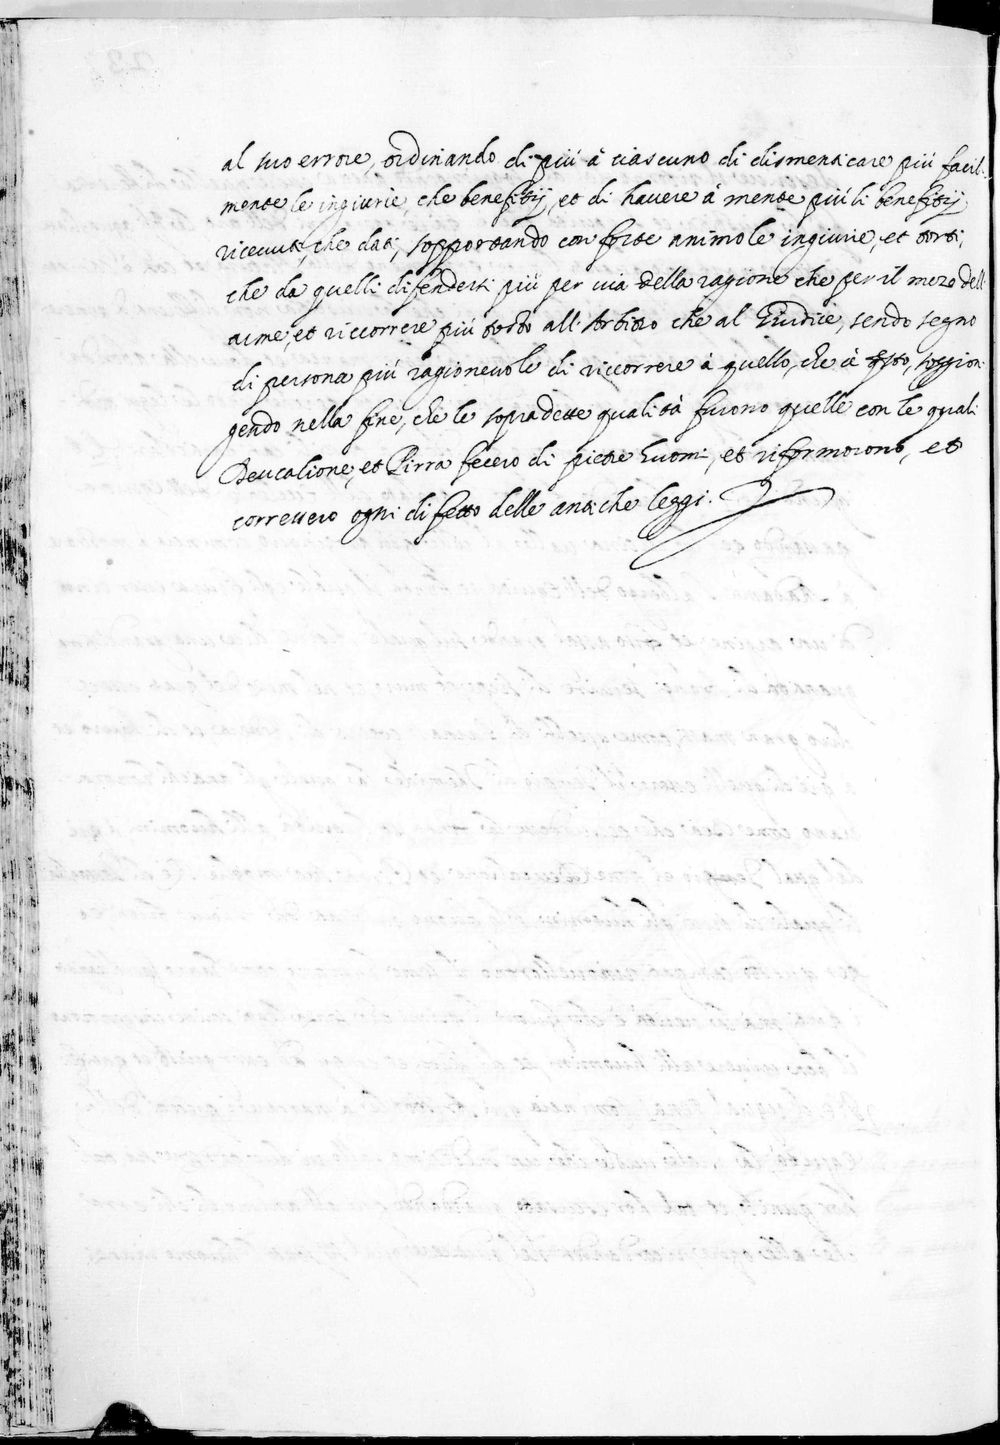 al suo errore, ordinando di più à ciascuno di dismenticare più facil-
mente le ingiurie che benefitij, et di havere à mente più li benefitij
ricevuti, che dati, sopportando con forte animo le ingiurie, et torti,
che da quelli difendersi più per via della ragione che per il mezo dell'
arme, et riccorrere più tosto all'Arbitro che al Giudice, sendo segno
di persona più ragionevole di riccorrere à quello, che à qsto, soggion-
gendo nella fine, che le sopradette qualità furono quelle con le quali
Deucalione, et Pirra fecero di pietre huomi, et riformorono, et
corressero ogni difetto delle antiche leggi.